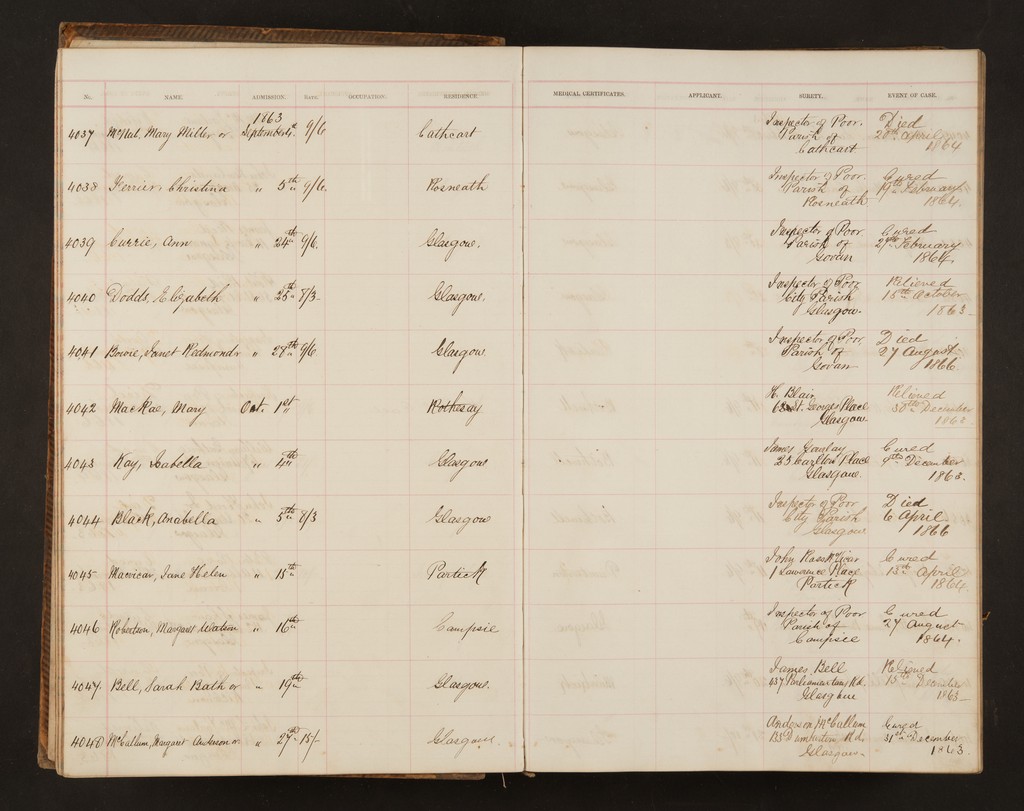 No. NAME. ADMISSION. RATE. OCCUPATION. RESIDENCE. MEDICAL CERTIFICATES. APPLICANT. SURETY. EVENT OF CASE.
1863
4037 McNab, Mary Miller or September 9/6 Cathcart Inspector of Poor. Died
Parish of 20th April
Cathcart 1864
4038 Ferrier, Christina " 5th " 9/6. Rosneath Inspector of Poor. Cured
Parish of 19th February
Rosneath 1864.
4039 Currie, Ann " 24th " 9/6. Glasgow. Inspector of Poor Cured
Parish of 27th February
Govan 1864.
4040 Dodds, Elizabeth " 25th " 8/3- Glasgow. Inspector of Poor Relieved
City Parish 15th October
Glasgow. 1863-
4041 Bowie, Janet Redmond or " 28th " 9/6 Glasgow Inspector of Poor. Died
Parish of 27 August
Govan 1866
4042 MacRae, Mary Oct. 1st " Rothesay H. Blair Relieved
St. Georges Place 30th December
Glasgow 1863
4043 Kay, Isabella " 4th " Glasgow James Cured
23 Carlton Place 4th December
Glasgow. 1863.
4044 Black, Anabella " 5th " 8/3 Glasgow Inspector of Poor Died
City Parish 6 April
Glasgow 1866
4045 Macvicar, Jane Helen " 15th " Partick John Ross Cured
1 Lawrence Place 13th April
Partick 1864.
4046 Robertson, Margaret Watson " 16th " Campsie Inspector of Poor Cured
Parish of 27 August
Campsie 1864.
4047 Bell, Sarah Bath or " 19th " Glasgow. James Bell Relieved
437 Parliamentary Rd. 15th December
Glasgow 1863-
4048 McCallum, Margaret Anderson or " 27th 15/- Glasgow Anderson McCallum Cured
Dumbarton Rd. 31st December
Glasgow- 1863.